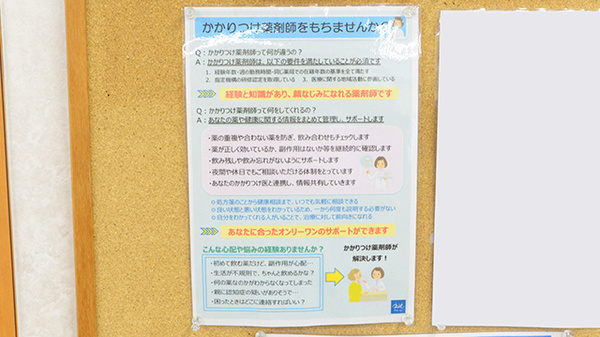 かかりつけ薬剤師をもちませんか？
Q：かかりつけ薬剤師って何が違うの？
A：かかりつけ薬剤師は、以下の要件を満たしていることが必須です
1. 経験年数・週の勤務時間・同じ薬局での在籍年数の基準を全て満たす
2. 指定機関の研修認定を取得している　3. 医療に関する地域活動に参画している
経験と知識があり、顔なじみになれる薬剤師です
Q：かかりつけ薬剤師って何をしてくれるの？
A：あなたの薬や健康に関する情報をまとめて管理し、サポートします
・薬の重複や合わない薬を防ぎ、飲み合わせもチェックします
・薬が正しく効いているか、副作用はないか等を継続的に確認します
・飲み残しや飲み忘れがないようにサポートします
・夜間や休日でもご相談いただける体制をとっています
・あなたのかかりつけ医と連携し、情報共有していきます
処方薬のことから健康相談まで、いつでも気軽に相談できる
良い状態と悪い状態をわかっているため、一から何度も説明する必要がない
自分をわかってくれる人がいることで、治療に対して前向きになれる
あなたに合ったオンリーワンのサポートができます
こんな心配や悩みの経験ありませんか？
・初めて飲む薬だけど、副作用が心配…
・生活が不規則で、ちゃんと飲めるかな？
・何の薬なのかがわからなくなってしまった
・親に認知症の疑いがありそうで…
・困ったときはどこに連絡すればいい？
かかりつけ薬剤師が
解決します！